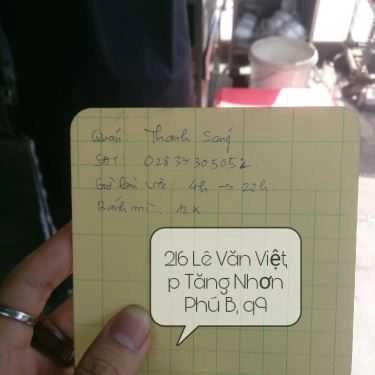 Quán Thanh Sang
SĐT 02837305052
Giờ làm việc 4h → 22h
Bánh mì: 12K
216 Lê Văn Việt,
p Tăng Nhơn
Phú B, q9